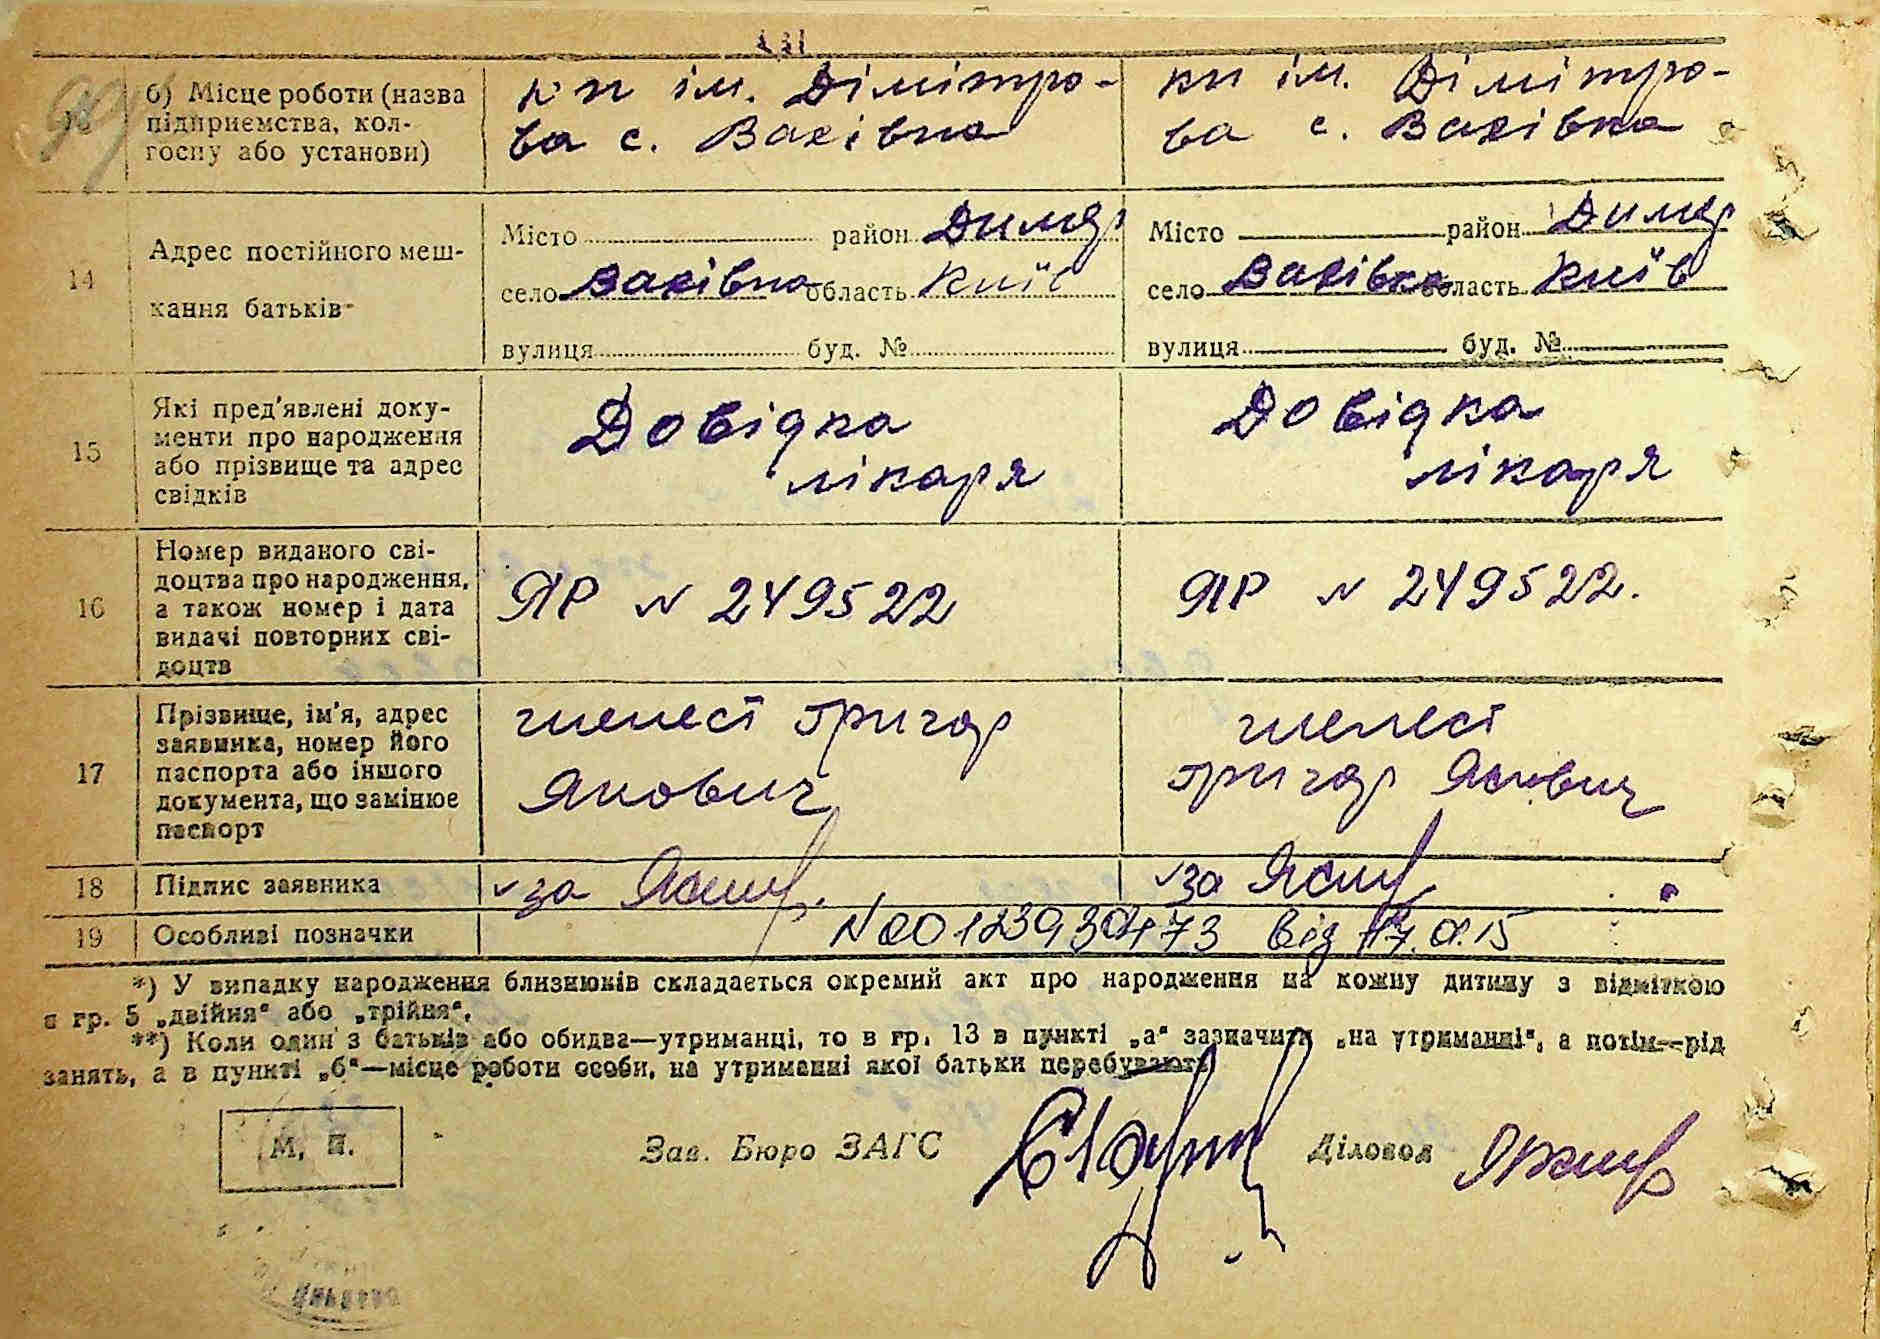 б) Місце роботи (назва
підприємства, кол-
госпу або установи)
кп ім. Дімітро-
ва с. Вахівка
кп ім. Дімітро-
ва с. Вахівка
14
Адрес постійного меш-
кання батьків
Місто район Димер
село Вахівка область Київ
вулиця буд. №
Місто район Димер
село Вахівка область Київ
вулиця буд. №
15
Які пред'явлені доку-
менти про народження
або прізвище та адрес
свідків
Довідка
лікаря
Довідка
лікаря
16
Номер виданого сві-
доцтва про народження,
а також номер і дата
видачі повторних сві-
доцтв
ЯР N 249522
ЯР N 249522.
17
Прізвище, ім'я, адрес
заявника, номер його
паспорта або іншого
документа, що замінює
паспорт
Шелест Григор
Якович
Шелест
Григор Якович
18
Підпис заявника
за
за
19
Особливі позначки
від
*) У випадку народження близнюків складається окремий акт про народження на кожну дитину з відміткою
в гр. 5 „двійня“ або „трійня“.
**) Коли один з батьків або обидва—утриманці, то в гр. 13 в пункті „а“ зазначити „на утриманні“, а потім—рід
занять, а в пункті „б“—місце роботи особи, на утриманні якої батьки перебувають
М. П.
Зав. Бюро ЗАГС
Діловод